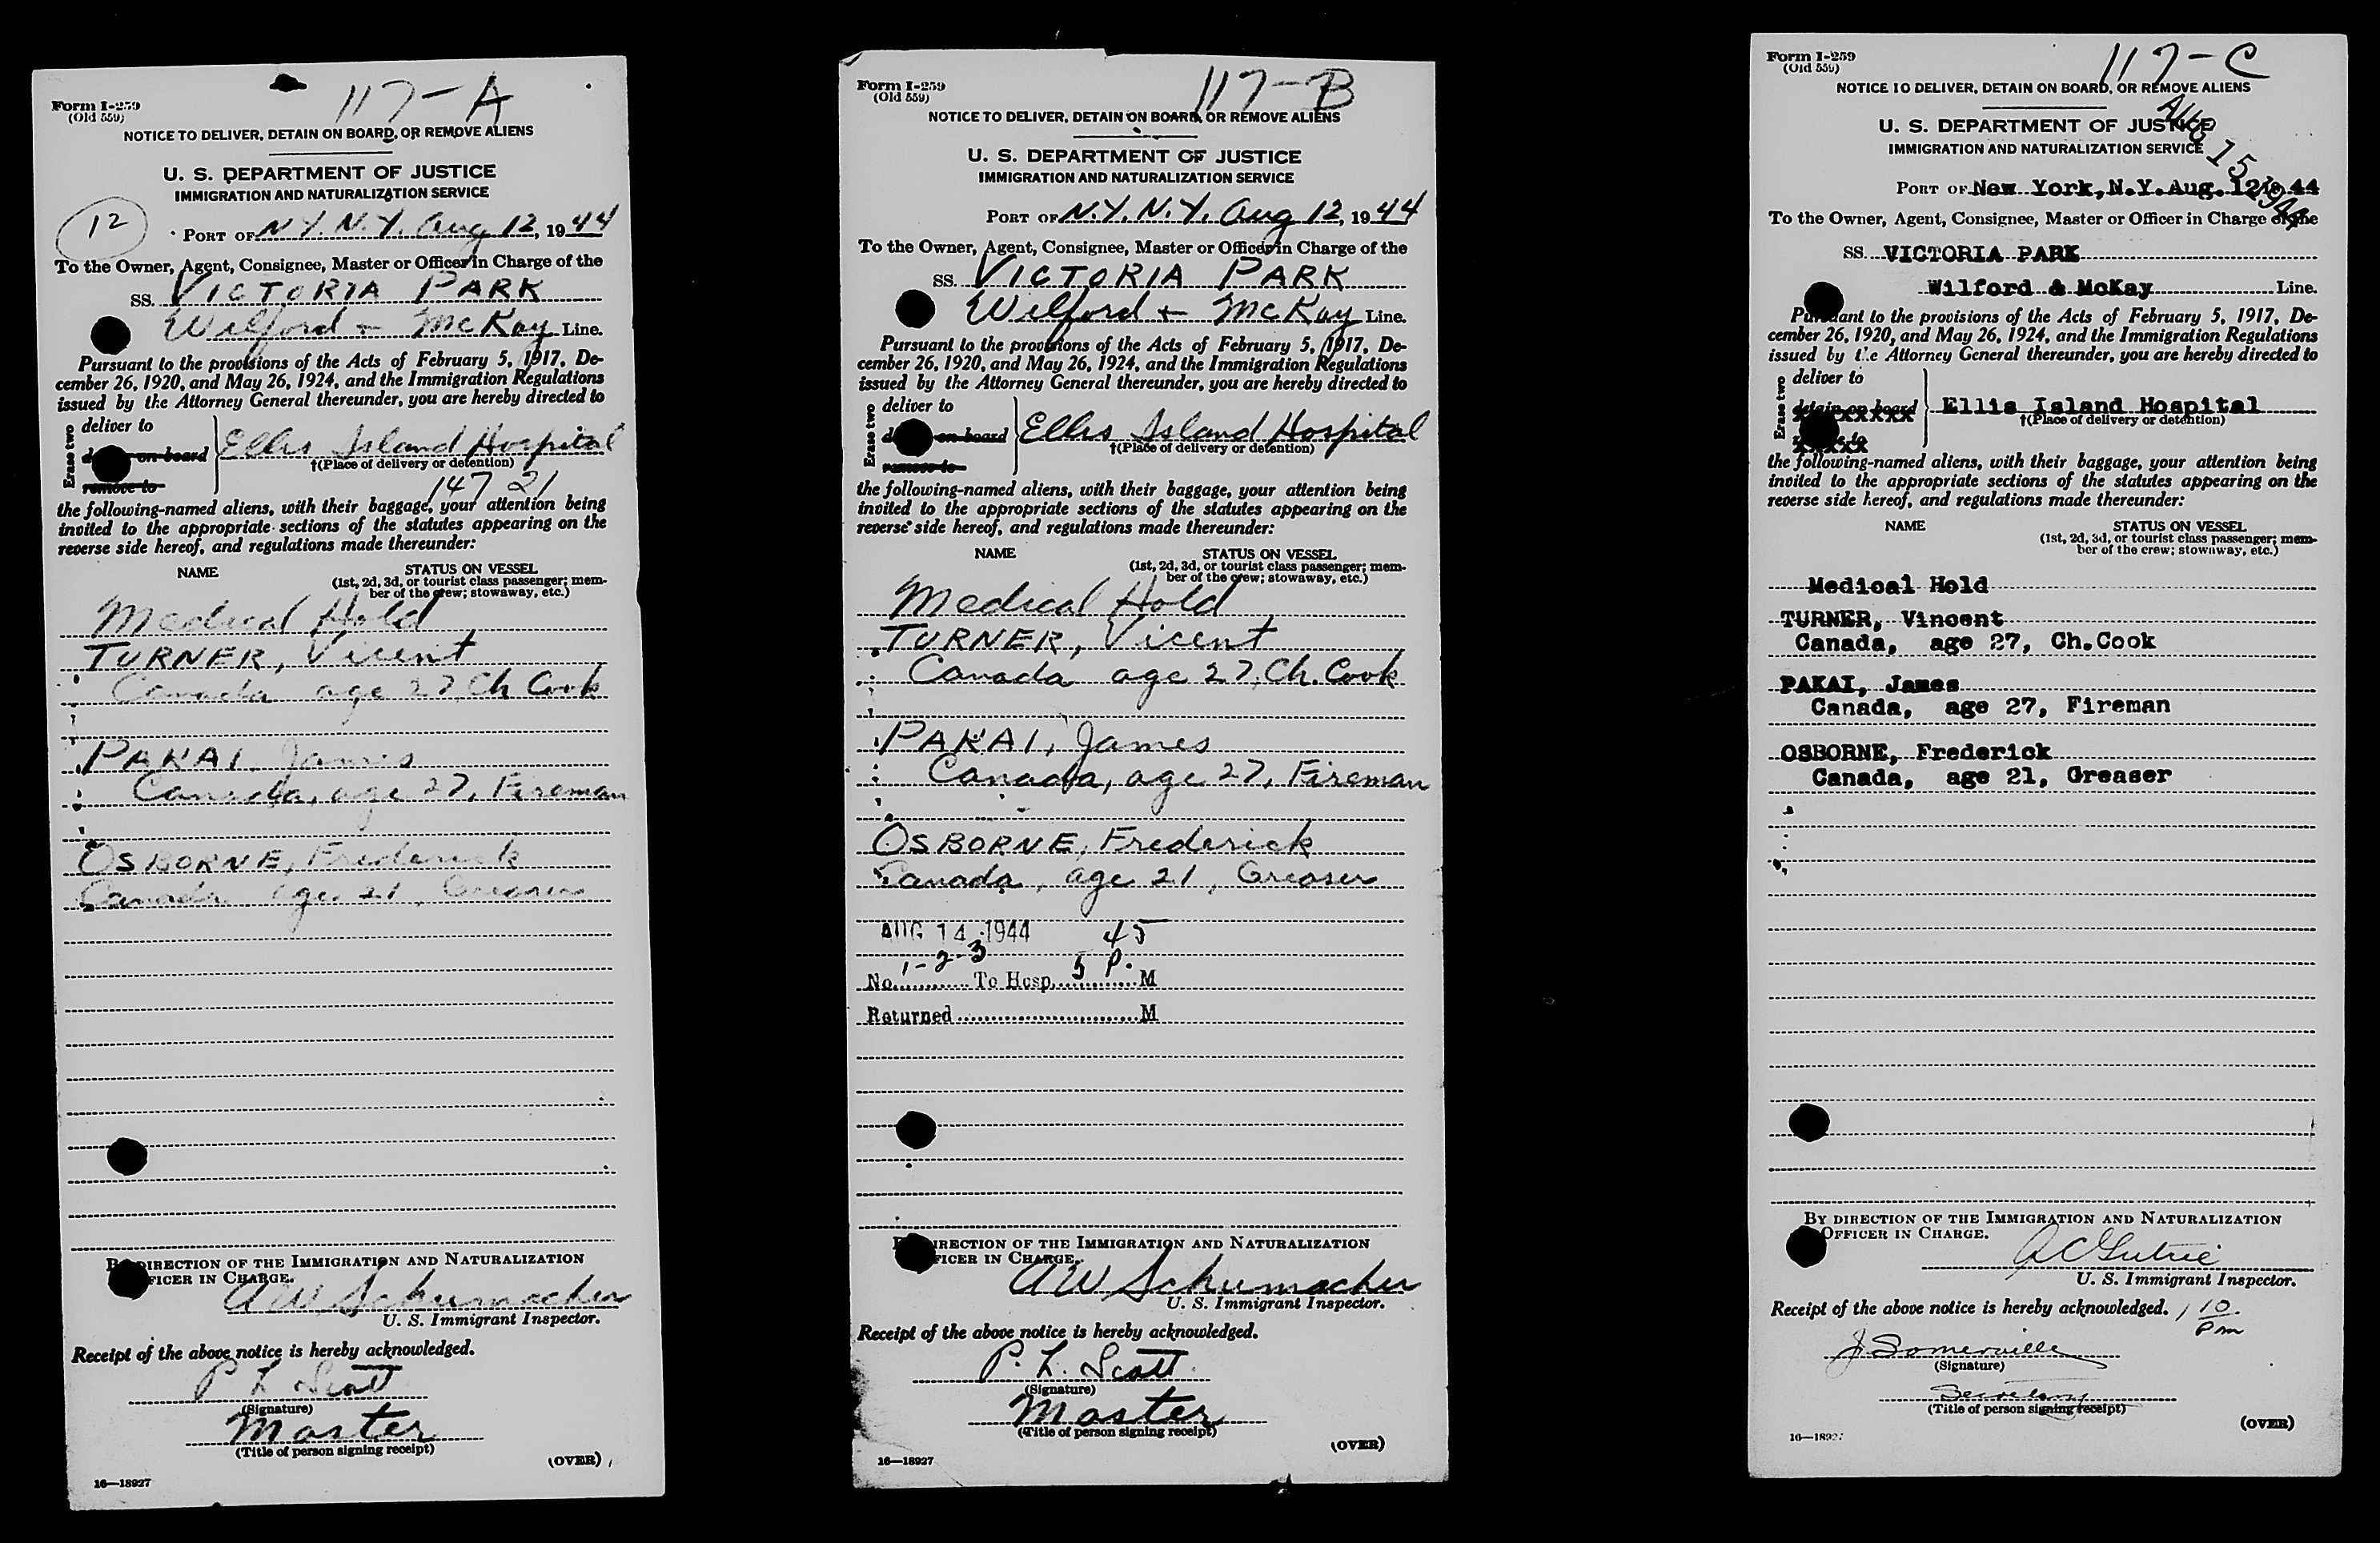 117-A
Form I-259
(Old 559)
NOTICE TO DELIVER, DETAIN ON BOARD, OR REMOVE ALIENS
U. S. DEPARTMENT OF JUSTICE
IMMIGRATION AND NATURALIZATION SERVICE
12
PORT OF N.Y. N.Y. Aug 12, 1944
To the Owner, Agent, Consignee, Master or Officer in Charge of the
SS. VICTORIA PARK
Wilford + McKay Line.
Pursuant to the provisions of the Acts of February 5, 1917, De-
cember 26, 1920, and May 26, 1924, and the Immigration Regulations
issued by the Attorney General thereunder, you are hereby directed to
Erase two
deliver to
on board
remove to
Ellis Island Hospital
†(Place of delivery or detention)
147 21
the following-named aliens, with their baggage, your attention being
invited to the appropriate sections of the statutes appearing on the
reverse side hereof, and regulations made thereunder:
NAME STATUS ON VESSEL
(1st, 2d, 3d, or tourist class passenger; mem-
ber of the crew; stowaway, etc.)
Medical Hold
TURNER, Vicent
Canada age 27, Ch Cook
PAKAI, James
Canada, age 27, Fireman
OSBORNE, Frederick
Canada age 21, Greaser
DIRECTION OF THE IMMIGRATION AND NATURALIZATION
FICER IN CHARGE.
AW Schumacher
U. S. Immigrant Inspector.
Receipt of the above notice is hereby acknowledged.
P L Scott
(Signature)
Master
(Title of person signing receipt)
(OVER)
16—18927
117-B
Form I-259
(Old 559)
NOTICE TO DELIVER, DETAIN ON BOARD, OR REMOVE ALIENS
U. S. DEPARTMENT OF JUSTICE
IMMIGRATION AND NATURALIZATION SERVICE
PORT OF N.Y. N.Y. Aug 12, 1944
To the Owner, Agent, Consignee, Master or Officer in Charge of the
SS. VICTORIA PARK
Wilford + McKay Line.
Pursuant to the provisions of the Acts of February 5, 1917, De-
cember 26, 1920, and May 26, 1924, and the Immigration Regulations
issued by the Attorney General thereunder, you are hereby directed to
Erase two
deliver to
on board
remove to
Ellis Island Hospital
†(Place of delivery or detention)
the following-named aliens, with their baggage, your attention being
invited to the appropriate sections of the statutes appearing on the
reverse side hereof, and regulations made thereunder:
NAME STATUS ON VESSEL
(1st, 2d, 3d, or tourist class passenger; mem-
ber of the crew; stowaway, etc.)
Medical Hold
TURNER, Vicent
Canada age 27, Ch. Cook
PAKAI, James
Canada, age 27, Fireman
OSBORNE, Frederick
Canada, age 21, Greaser
AUG 14 1944 45
No. 1-2-3 To Hosp. 5 P. M
Returned M
DIRECTION OF THE IMMIGRATION AND NATURALIZATION
FICER IN CHARGE.
AW Schumacher
U. S. Immigrant Inspector.
Receipt of the above notice is hereby acknowledged.
P. L. Scott
(Signature)
Master
(Title of person signing receipt)
(OVER)
16—18927
117-C
Form I-259
(Old 559)
NOTICE TO DELIVER, DETAIN ON BOARD, OR REMOVE ALIENS
AUG 15 1944
U. S. DEPARTMENT OF JUSTICE
IMMIGRATION AND NATURALIZATION SERVICE
PORT OF New York, N.Y. Aug. 12, 1944
To the Owner, Agent, Consignee, Master or Officer in Charge of the
SS. VICTORIA PARK
Wilford & McKay Line.
Pursuant to the provisions of the Acts of February 5, 1917, De-
cember 26, 1920, and May 26, 1924, and the Immigration Regulations
issued by the Attorney General thereunder, you are hereby directed to
Erase two
deliver to
detain on board
Ellis Island Hospital
†(Place of delivery or detention)
the following-named aliens, with their baggage, your attention being
invited to the appropriate sections of the statutes appearing on the
reverse side hereof, and regulations made thereunder:
NAME STATUS ON VESSEL
(1st, 2d, 3d, or tourist class passenger; mem-
ber of the crew; stowaway, etc.)
Medical Hold
TURNER, Vincent
Canada, age 27, Ch.Cook
PAKAI, James
Canada, age 27, Fireman
OSBORNE, Frederick
Canada, age 21, Greaser
BY DIRECTION OF THE IMMIGRATION AND NATURALIZATION
OFFICER IN CHARGE.
U. S. Immigrant Inspector.
Receipt of the above notice is hereby acknowledged. 1 10 pm
J Somerville
(Signature)
Secretary
(Title of person signing receipt)
(OVER)
16—18927